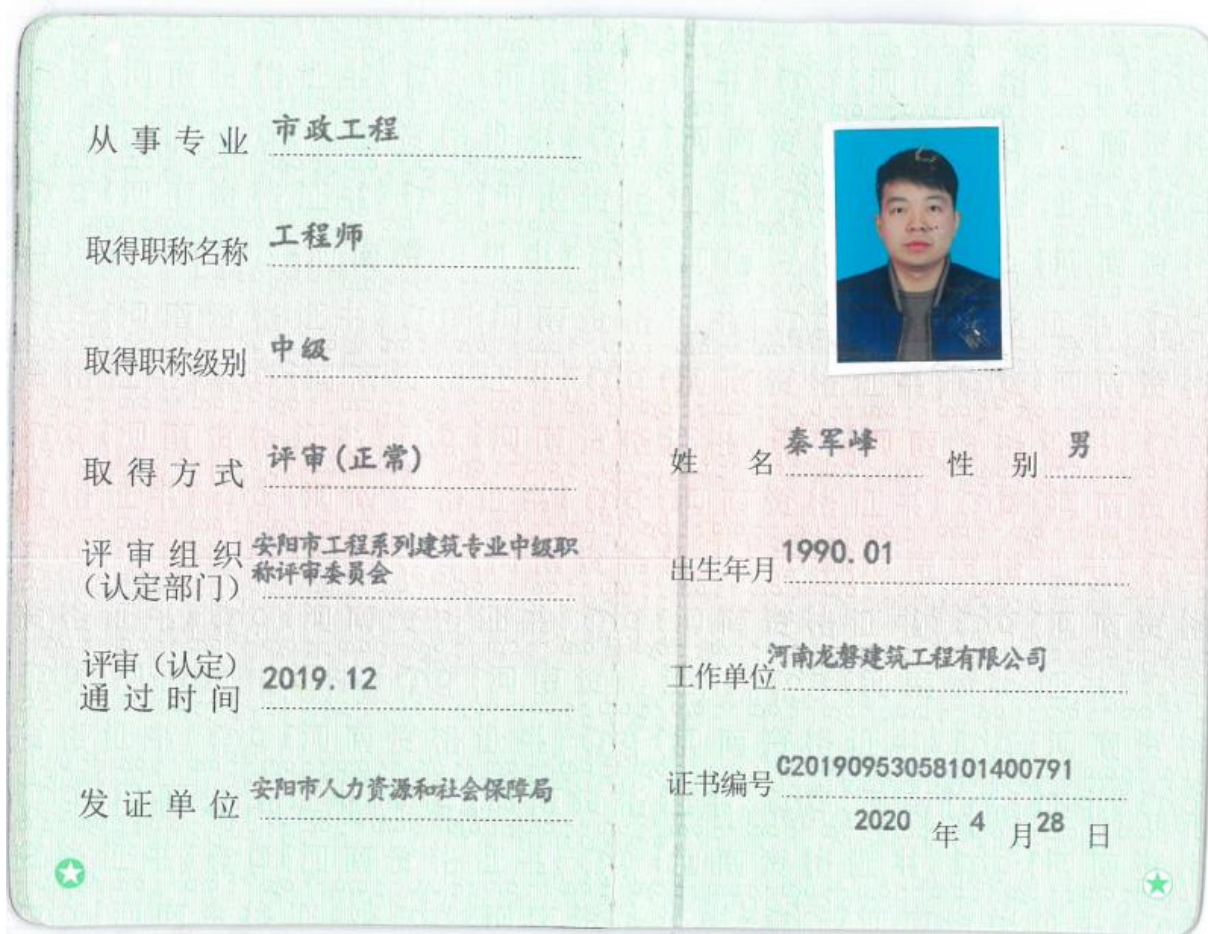 从事专业 市政工程
取得职称名称 工程师
取得职称级别 中级
取得方式 评审(正常)
评审组织 安阳市工程系列建筑专业中级职
(认定部门) 称评审委员会
评审（认定）
通过时间 2019.12
发证单位 安阳市人力资源和社会保障局
姓名 秦军峰 性别 男
出生年月 1990.01
工作单位 河南龙磐建筑工程有限公司
证书编号 C20190953058101400791
2020 年 4 月 28 日